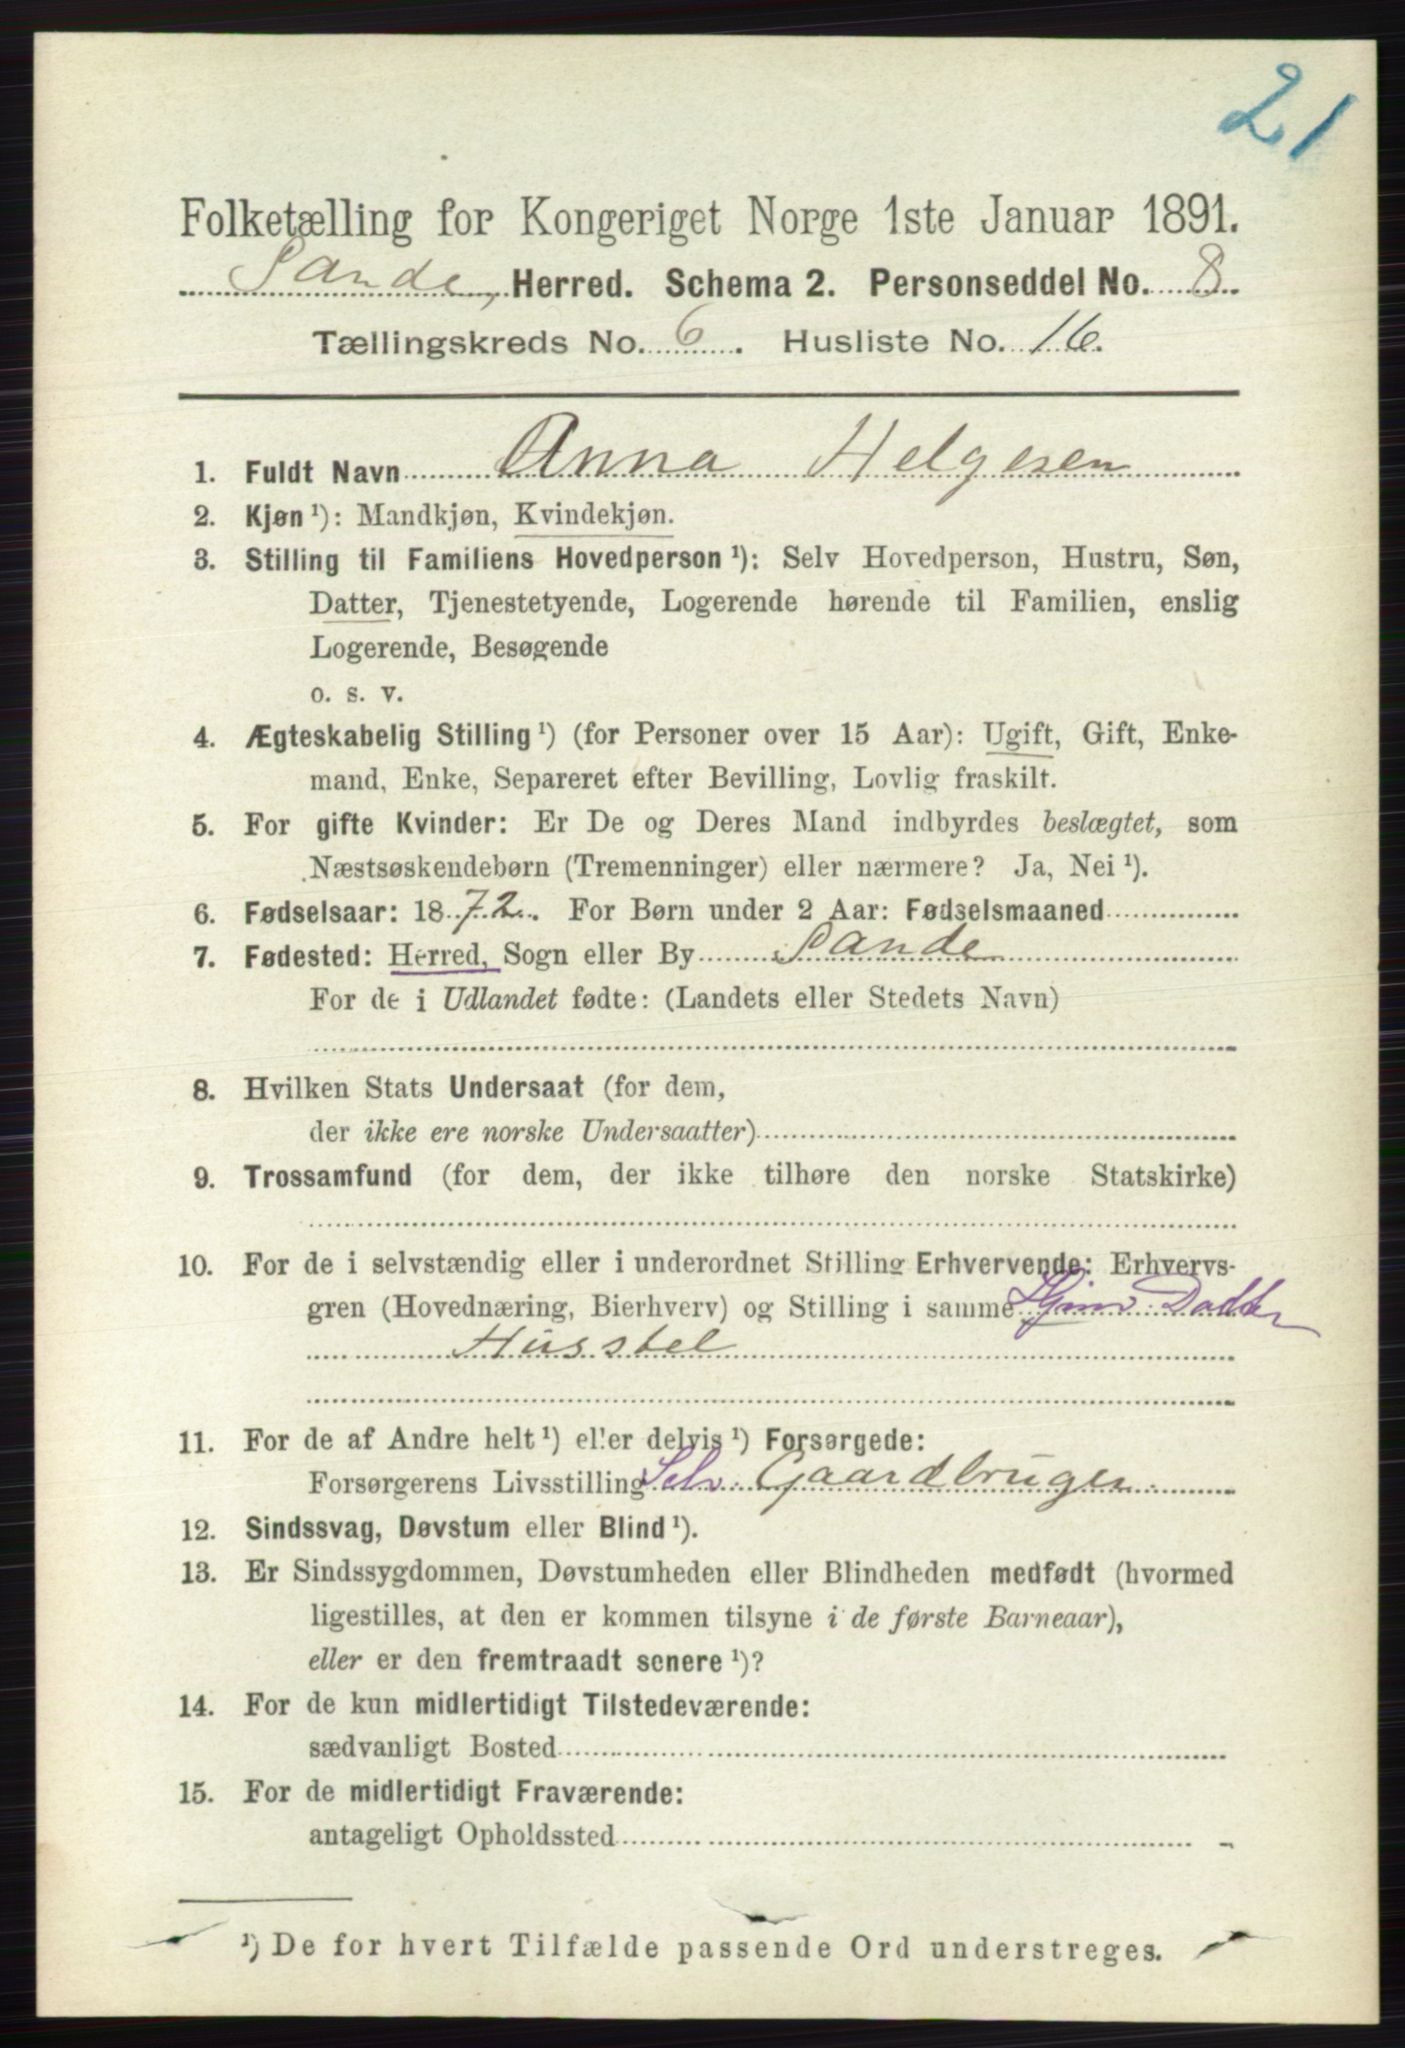 21
Folketælling for Kongeriget Norge 1ste Januar 1891.
Sande, Herred. Schema 2. Personseddel No. 8.
Tællingskreds No. 6. Husliste No. 16.
1. Fuldt Navn Anna Helgesen
2. Kjøn ¹): Mandkjøn, Kvindekjøn.
3. Stilling til Familiens Hovedperson ¹): Selv Hovedperson, Hustru, Søn,
Datter, Tjenestetyende, Logerende hørende til Familien, enslig
Logerende, Besøgende
o. s. v.
4. Ægteskabelig Stilling ¹) (for Personer over 15 Aar): Ugift, Gift, Enke-
mand, Enke, Separeret efter Bevilling, Lovlig fraskilt.
5. For gifte Kvinder: Er De og Deres Mand indbyrdes beslægtet, som
Næstsøskendebørn (Tremenninger) eller nærmere? Ja, Nei ¹).
6. Fødselsaar: 1872. For Børn under 2 Aar: Fødselsmaaned
7. Fødested: Herred, Sogn eller By Sande
For de i Udlandet fødte: (Landets eller Stedets Navn)
8. Hvilken Stats Undersaat (for dem,
der ikke ere norske Undersaatter)
9. Trossamfund (for dem, der ikke tilhøre den norske Statskirke)
10. For de i selvstændig eller i underordnet Stilling Erhvervende: Erhvervs-
gren (Hovednæring, Bierhverv) og Stilling i samme Hjemv Datter
Husstel
11. For de af Andre helt ¹) eller delvis ¹) Forsørgede:
Forsørgerens Livsstilling Selv. Gaardbruger
12. Sindssvag, Døvstum eller Blind ¹).
13. Er Sindssygdommen, Døvstumheden eller Blindheden medfødt (hvormed
ligestilles, at den er kommen tilsyne i de første Barneaar),
eller er den fremtraadt senere ¹)?
14. For de kun midlertidigt Tilstedeværende:
sædvanligt Bosted
15. For de midlertidigt Fraværende:
antageligt Opholdssted
¹) De for hvert Tilfælde passende Ord understreges.